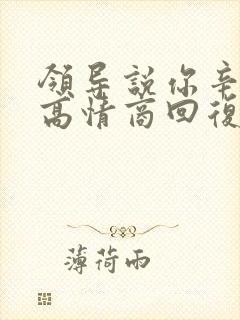 領导說你辛
高情商回復
薄荷雨